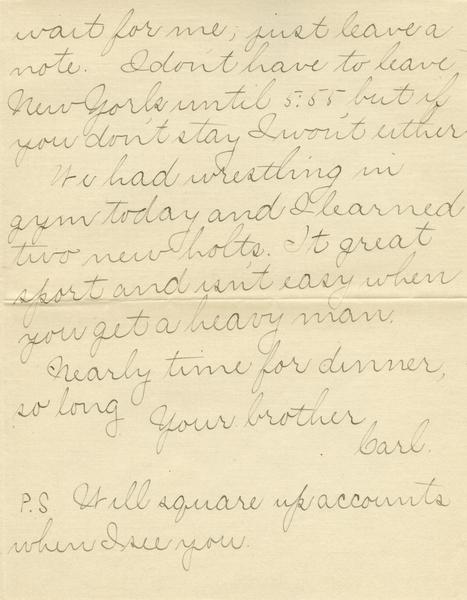 wait for me, just leave a
note. I don't have to leave
New York until 5:55 but if
you don't stay I won't either
We had wrestling in
gym today and I learned
two new holts. It great
sport and isn't easy when
you get a heavy man.
Nearly time for dinner,
so long
Your brother
Carl.
P.S Will square up accounts
when I see you.